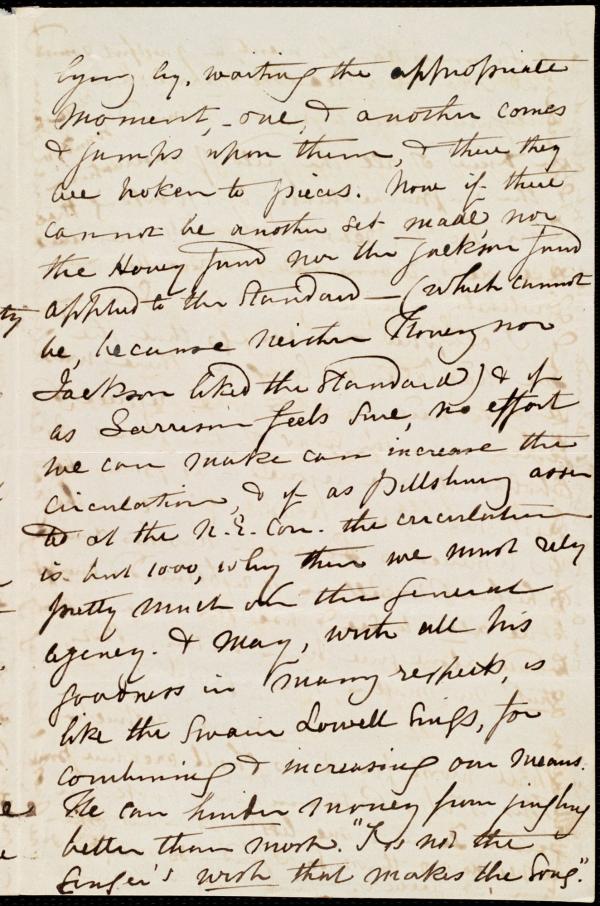 lying by, waiting the appropriate
moment, - one, & another comes
& jumps upon them, & there they
are broken to pieces. Now if there
cannot be another set made nor
the Hovey fund nor the Jackson fund
applied to the Standard — (which cannot
be, because neither Hovey nor
Jackson liked the Standard) & if
as Garrison feels sure, no effort
we can make can increase the
circulation, & if as Pillsbury asser
ted at the N. E. Con. the circulation
is but 1000, why then we must rely
pretty much on the general
agency. & May, with all his
goodness in many respects, is
like the Swain Lowell sings, for
combining & increasing our means.
He can hinder money from jingling
better than most. "Tis not the
Singer's wish that makes the Song".